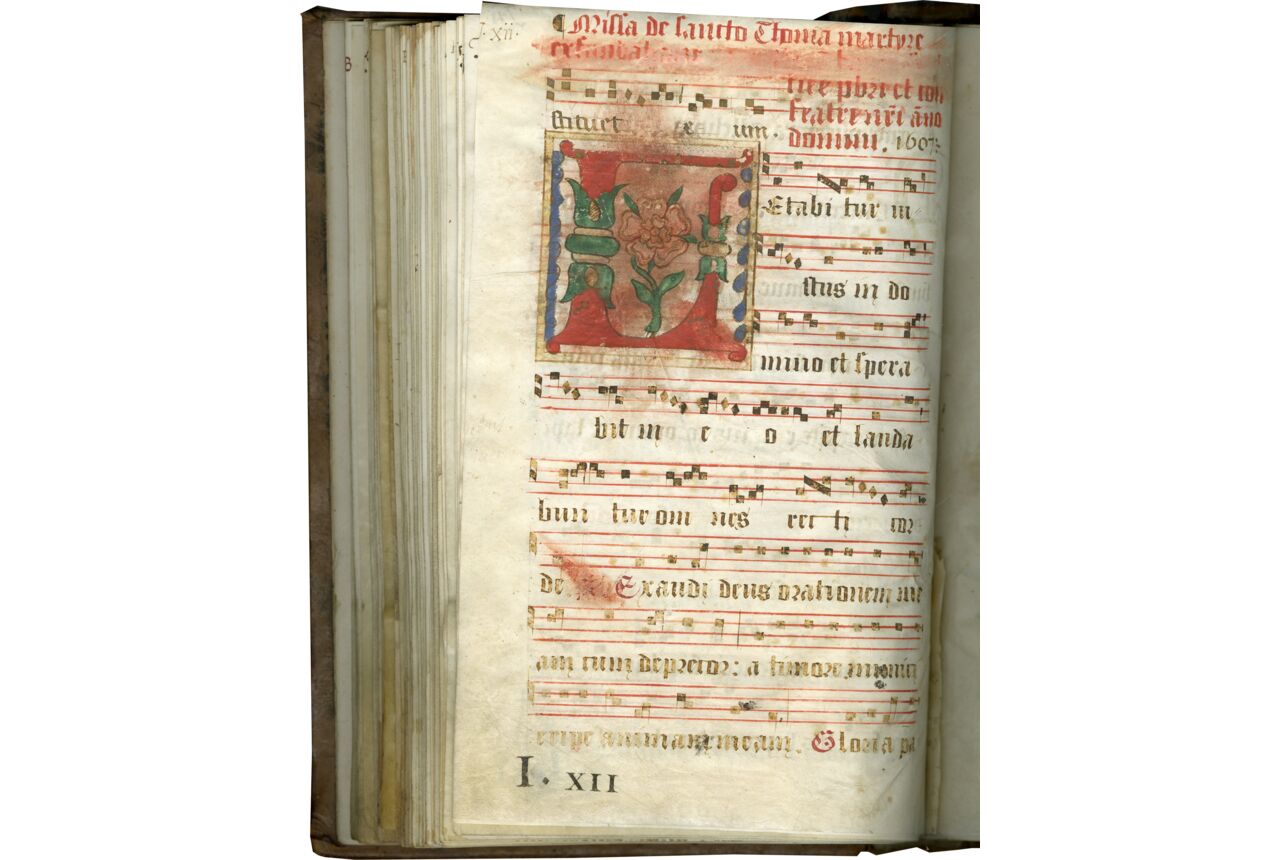 I. xii.
Missa de sancto Thoma martyre
ex fundatione
tire pbri et con
fratris nri ano
domini. 1607.
stituet rex um.
LEtabi tur iu
stus in do
mino et spera
bit in e o et lauda
bun tur om nes rec ti cor
de. Exaudi deus orationem me
am cum deprecor: a timore inimici
eripe animam meam. Gloria pa
I. XII